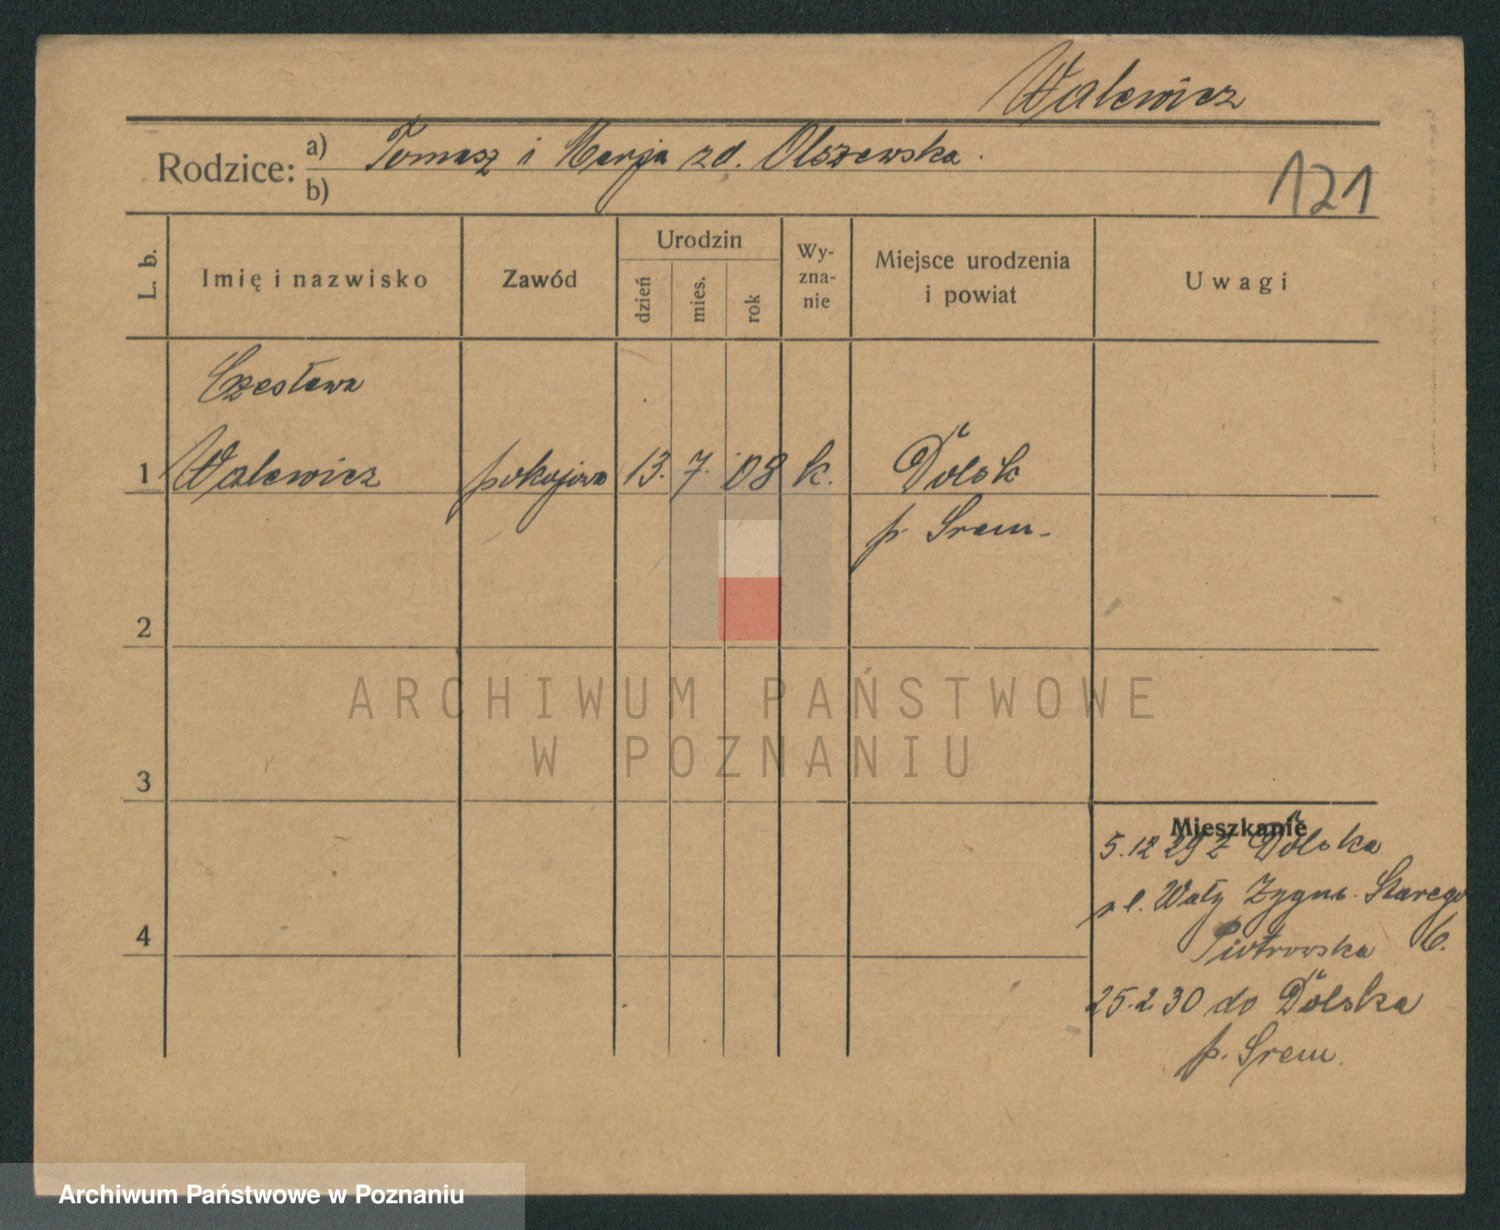 Walewicz
Rodzice: a) Tomasz i Marja zd. Olszewska.
b)
121
L. b.
Imię i nazwisko
Zawód
Urodzin
dzień
mies.
rok
Wy-
zna-
nie
Miejsce urodzenia
i powiat
Uwagi
Czesława
1 Walewicz pokojowa 13. 7. 08 k. Dolsk
p. Śrem.
2
ARCHIWUM PAŃSTWOWE
W POZNANIU
3
Mieszkanie
5.12 29 z Dolska
Wały Zygm. Starego
4
Piotrowska 6.
25.2.30 do Dolska
p. Śrem.
Archiwum Państwowe w Poznaniu